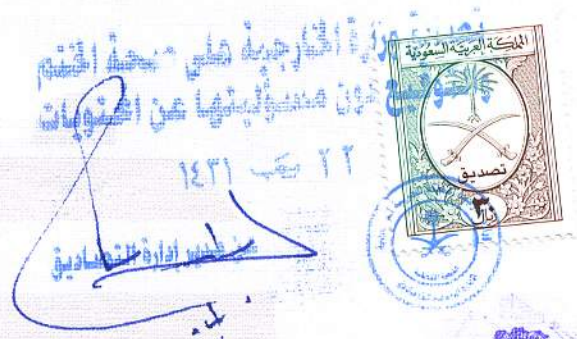 تصدق وزارة الخارجية على صحة الختم
والتوقيع دون مسؤليتها عن المحتويات
٢٢ رجب ١٤٣١
عن مدير إدارة التصاديق
المملكة العربية السعودية
تصديق
٣٠
ريال